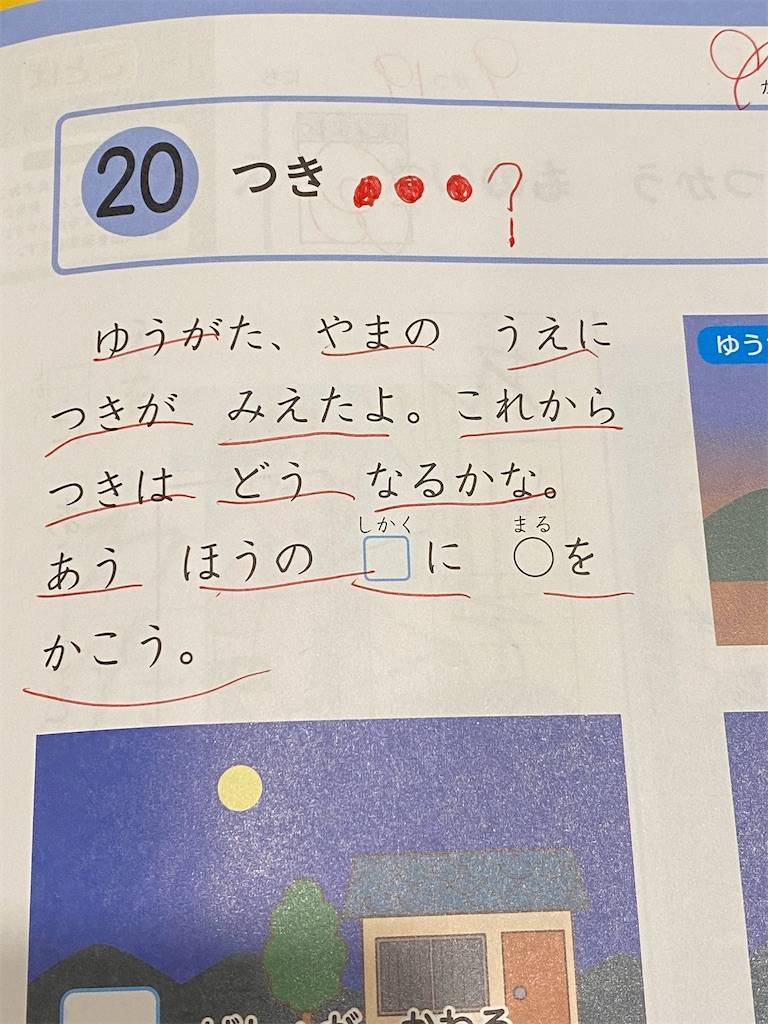 20 つき ?
ゆうがた、やまの うえに
つきが みえたよ。これから
つきは どう なるかな。
しかく まる
あう ほうの □に ○を
かこう。
ゆう
かわる